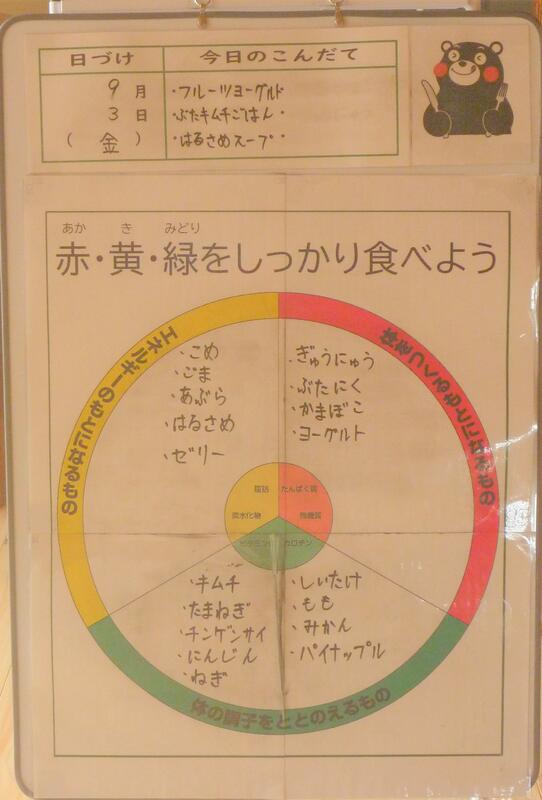 日づけ 今日のこんだて
9月 ・フルーツヨーグルト
3日 ・ぶたキムチごはん・
(金) ・はるさめスープ・
あか き みどり
赤・黄・緑をしっかり食べよう
エネルギーのもとになるもの
体をつくるもとになるもの
・こめ
・ごま
・あぶら
・はるさめ
・ゼリー
・ぎゅうにゅう
・ぶたにく
・かまぼこ
・ヨーグルト
脂肪 たんぱく質
炭水化物 無機質
ビタミンC カロテン
・キムチ
・たまねぎ
・チンゲンサイ
・にんじん
・ねぎ
・しいたけ
・もも
・みかん
・パイナップル
体の調子をととのえるもの